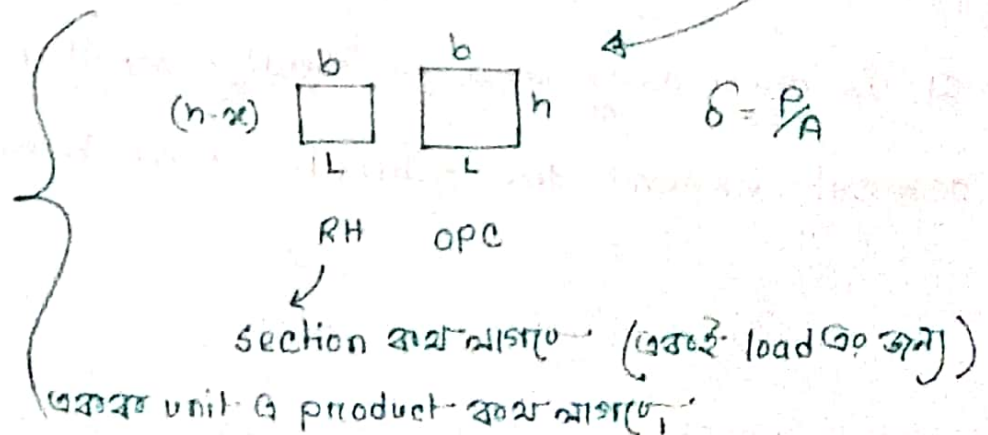 b b
(h-x) h δ = P/A
L L
RH OPC
section কম লাগবে (একই load এর জন্য)
একক unit এ product কম লাগবে,